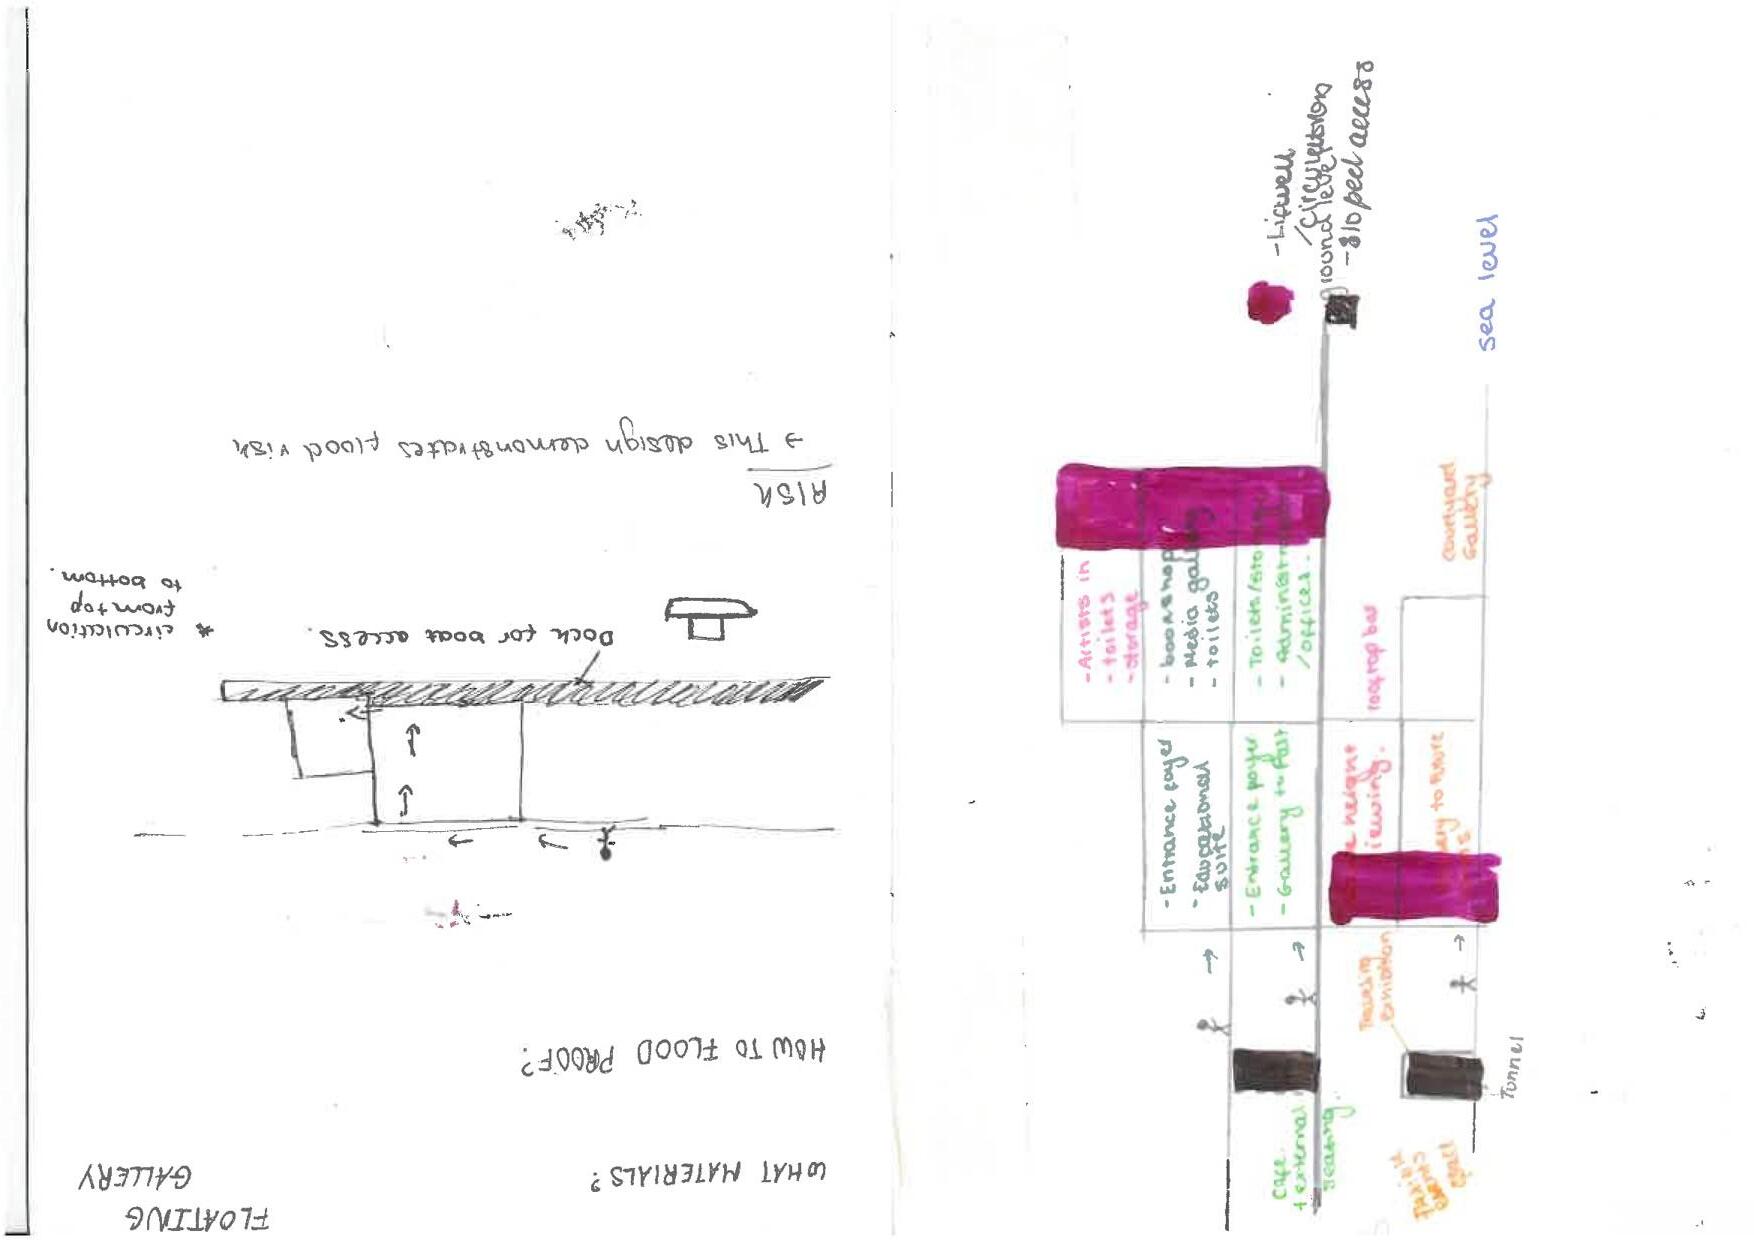 FLOATING
GALLERY
WHAT MATERIALS?
HOW TO FLOOD PROOF?
Dock for boat access.
* circulation
from top
to bottom.
RISK
→ This design demonstrates flood risk
- Artists in
- toilets
- storage
- bookshop
- Media gallery
- toilets
- Toilets/storage
- Administration
/offices.
rooftop bar
courtyard
Gallery
- Entrance foyer
- Educational
suite
- Entrance foyer
- Gallery to Past
height
viewing.
to future
Travelling
exhibition
Cafe
+ external
seating.
Flexible
events
space
Tunnel
/circulation
ground level
- sloped access
sea level